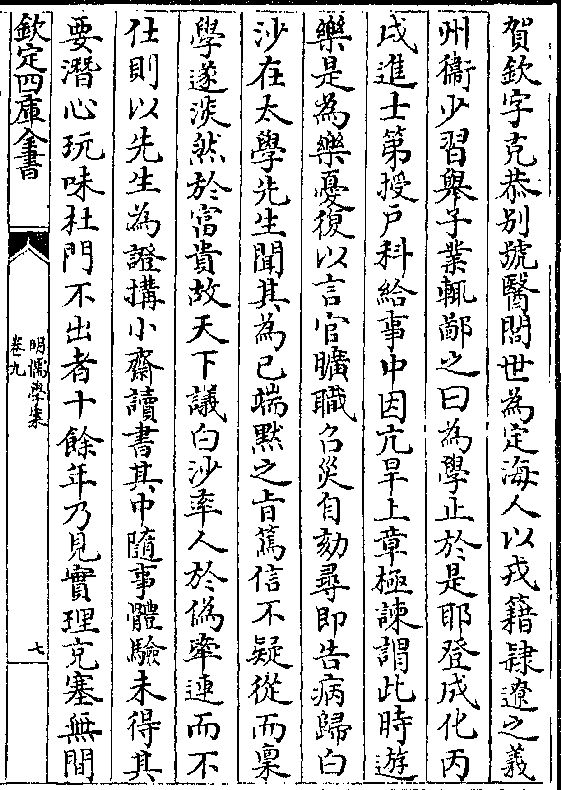 賀欽字克恭别號醫閭世為定海人以戎籍隷遼之義
州衞少習舉子業輒鄙之曰為學止於是耶登成化丙
戌進士第授户科給事中因亢旱上章極諫謂此時遊
樂是為樂憂復以言官曠職召災自劾尋即告病歸白
沙在太學先生聞其為己端黙之旨篤信不疑從而禀
學遂淡然於富貴故天下議白沙率人於偽牽連而不
仕則以先生為證搆小齋讀書其中隨事體驗未得其
要潛心玩味杜門不出者十餘年乃見實理充塞無間
欽定四庫全書
明儒學案
卷九
七